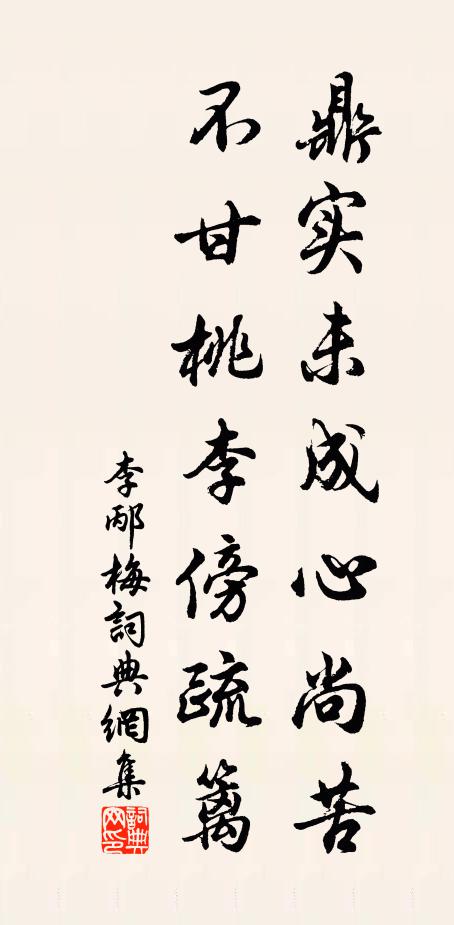 鼎实未成心尚苦
不甘桃李傍疏篱
李邴梅詞典網集
詞典网印